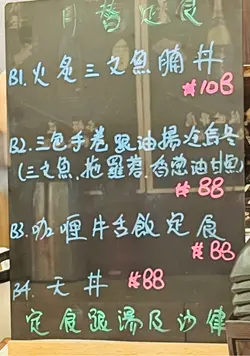 日替定食
B1. 火炙三文魚腩丼
$108
B2. 三色手卷跟油揚冷烏冬
(三文魚、拖羅蓉、香葱油甘魚)
$88
B3. 咖喱牛舌飯定食
$88
B4. 天丼 $88
定食跟湯及沙律